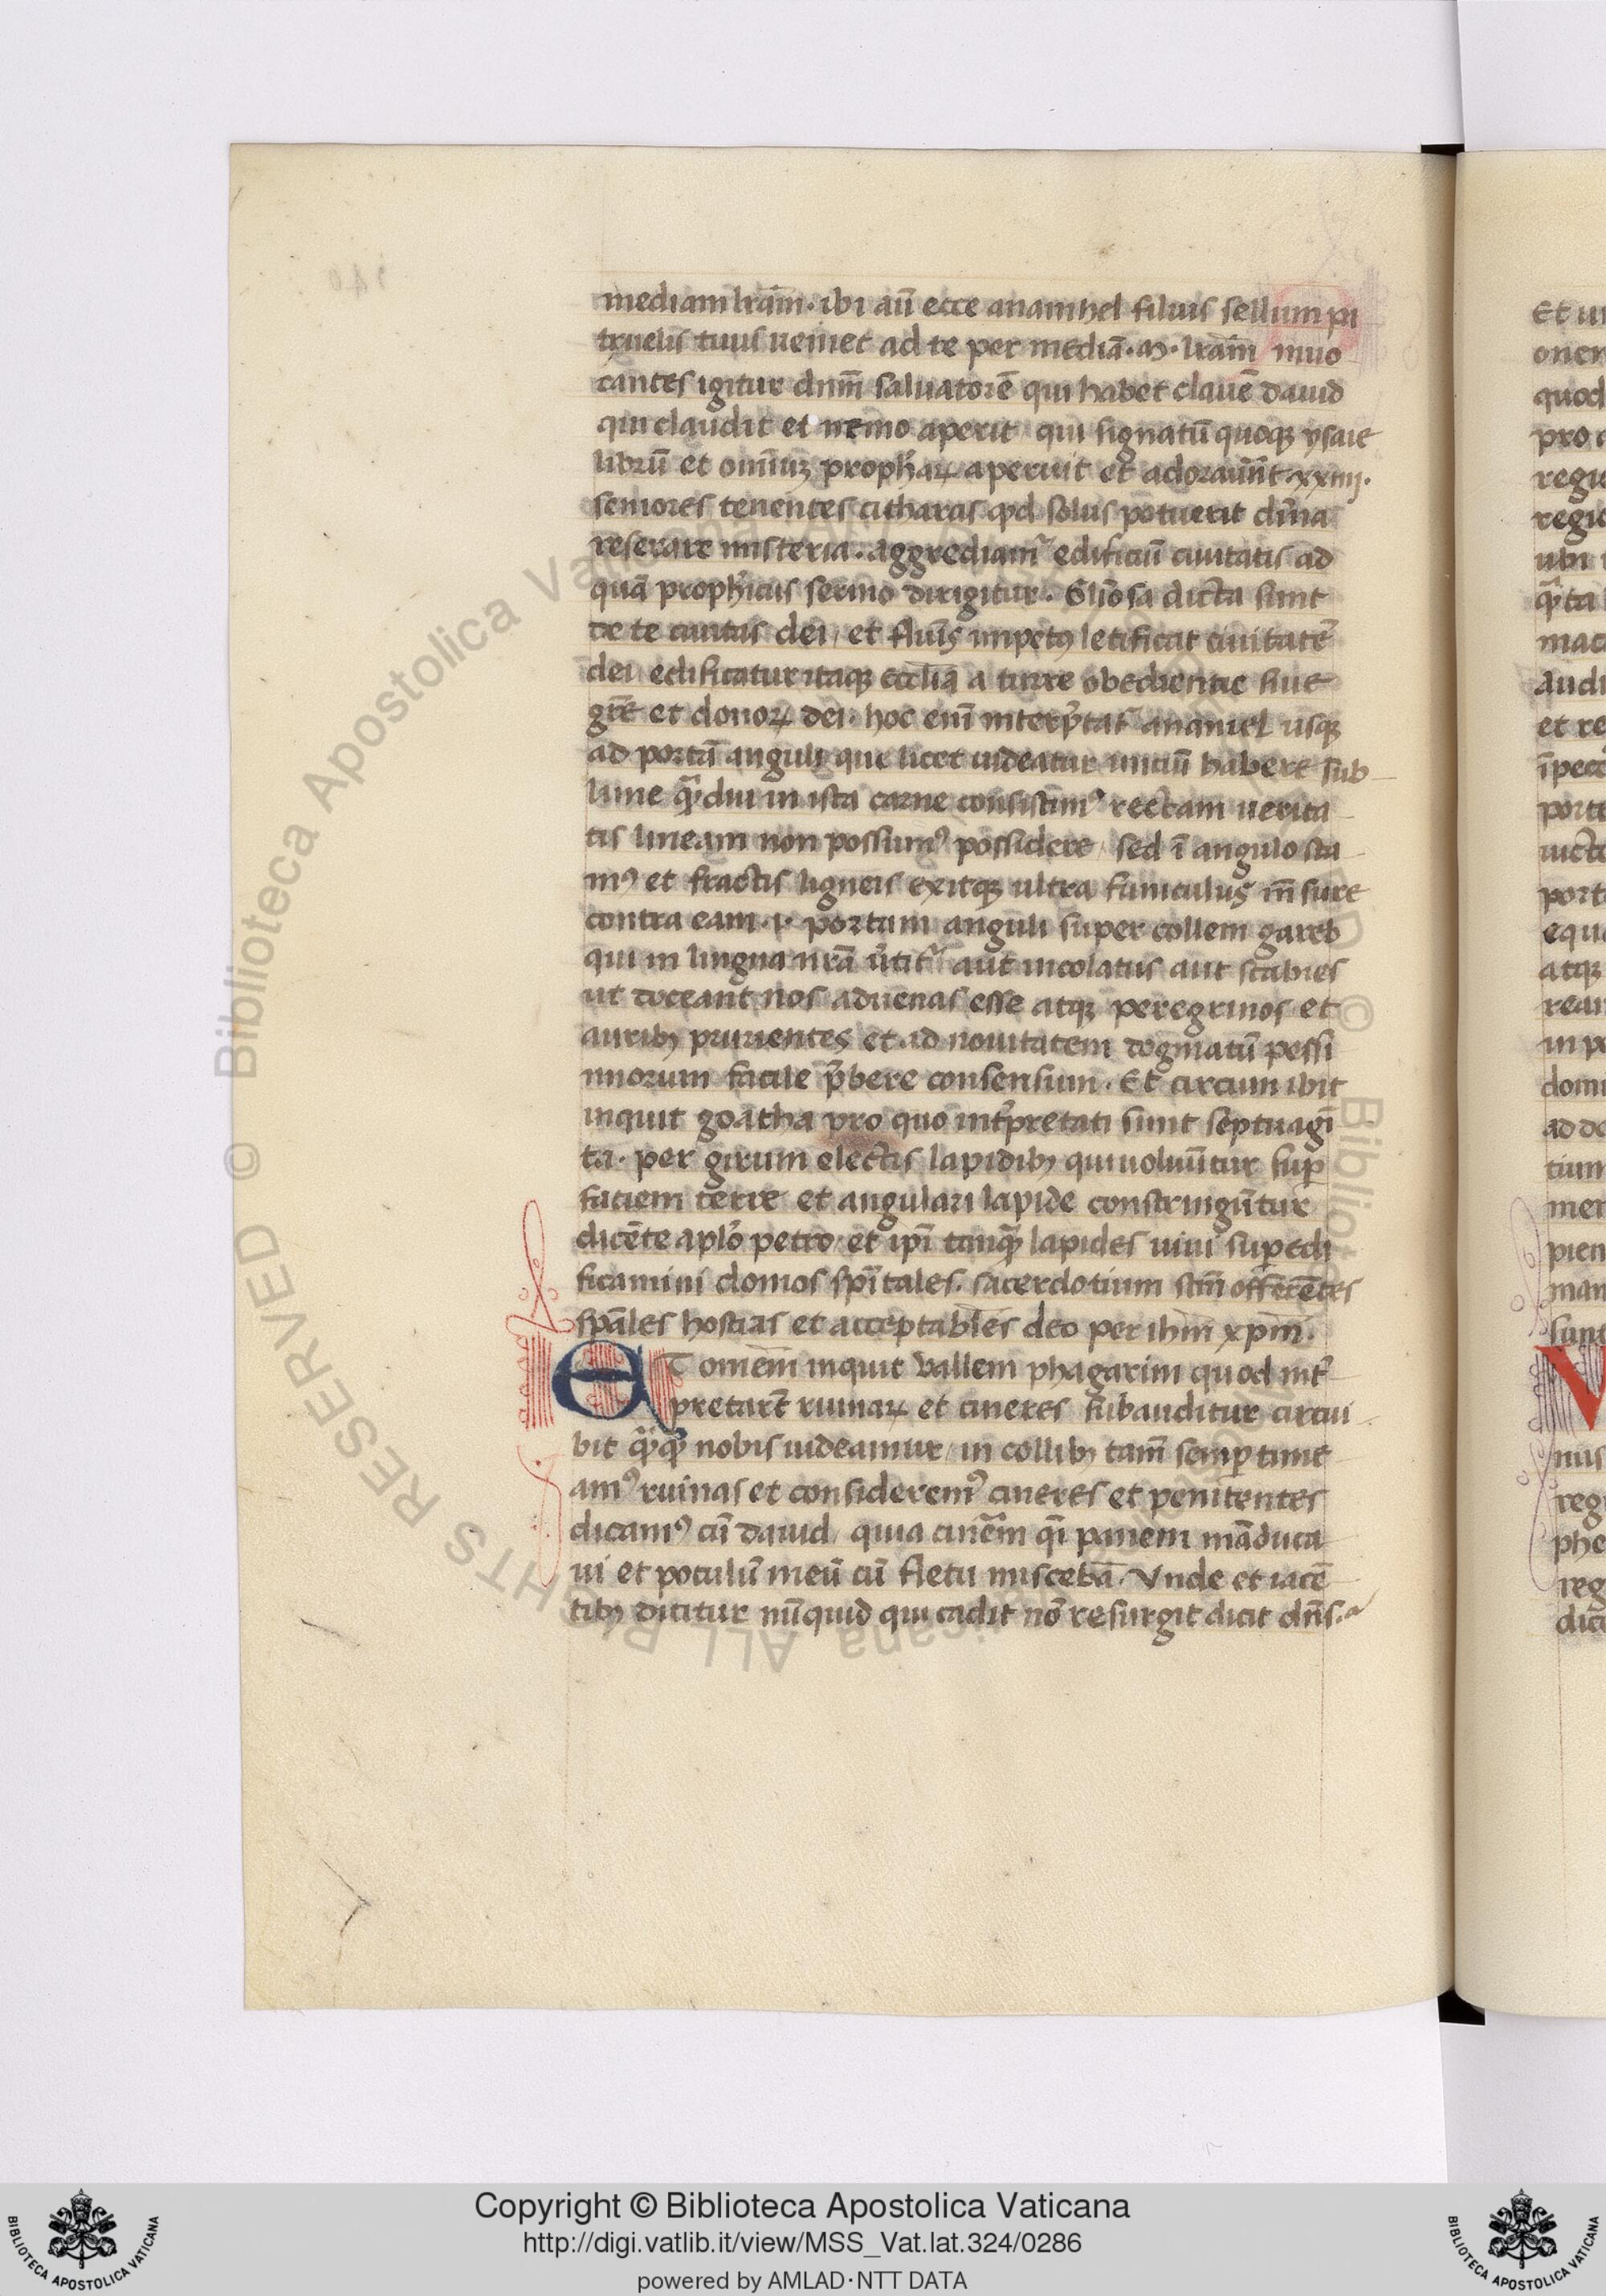 mediam lr̄am· ibi aū ecce anamhel filius sellum pa
truelis tuus ueniet ad te per mediā·m·lr̄am inuo
cantes igitur dnm̄ saluatorē qui habet clauē dauid
qui claudit et nemo aperit qui signatū quoqꝫ ysaie
librū et omniuꝫ prophaꝝ aperuit et adorauūt·xxiiij·
seniores tenentes citharas qd solus potuerit diuīa
reserare misteria· aggrediamˀ edificiū ciuitatis ad
quā prophicus sermo dirigitur· Gliōsa dicta sunt
de te ciuitas dei, et fluīs impetꝰ letificat ciuitatē
dei edificatur itaqꝫ eccliā a turre obedientie siue
grē et donoꝝ dei· hoc enī interp̄tatˀ ananiel usqꝫ
ad portā anguli que licet uideatur initiū habere sub
lime qᷓdiu in ista carne consistimꝰ rectam uerita
tis lineam non possumꝰ possidere sed ī angulo sta
mꝰ et fractis ligneis exitqꝫ ultra funiculus mēsure
contra eam·i· portam anguli super collem gareb
qui in lingua nrā u̾titˀ aut incolatus aut scabies
ut doceant nos aduenas esse atqꝫ peregrinos et
auribꝫ prurientes et ad nouitatem dogmatū pessi
morum facile p̄bere consensum· Et circum ibit
inquit goatha pro quo int̾pretati sunt septuagī
ta· per girum electis lapidibꝫ qui uoluūtur suꝑ
faciem terre et angulari lapide constringūtur
dicēte aplō petro· et ipī tanqᷓ lapides uiui suꝑedi
ficamini domos spītales· sacerdotium scm̄ offerētes
spāles hostias et acceptabiles deo per ihm̄ xpm̄·
ET omēm inquit vallem phagarim quod int̾
pretatˀ ruinaꝝ et cineres subauditur circui
bit qᷓqᷓ nobis uideamur in collibꝫ tam̄ semꝑ time
amꝰ ruinas et consideremꝰ cineres et penitentes
dicamꝰ cū dauid quia cinēm qī panem māduca
ui et poculū meū cū fletu miscebā· Vnde et iacē
tibꝫ dicitur nūquid qui cadit nō resurgit dicit dn̄s·
Copyright © Biblioteca Apostolica Vaticana
http://digi.vatlib.it/view/MSS_Vat.lat.324/0286
powered by AMLAD·NTT DATA